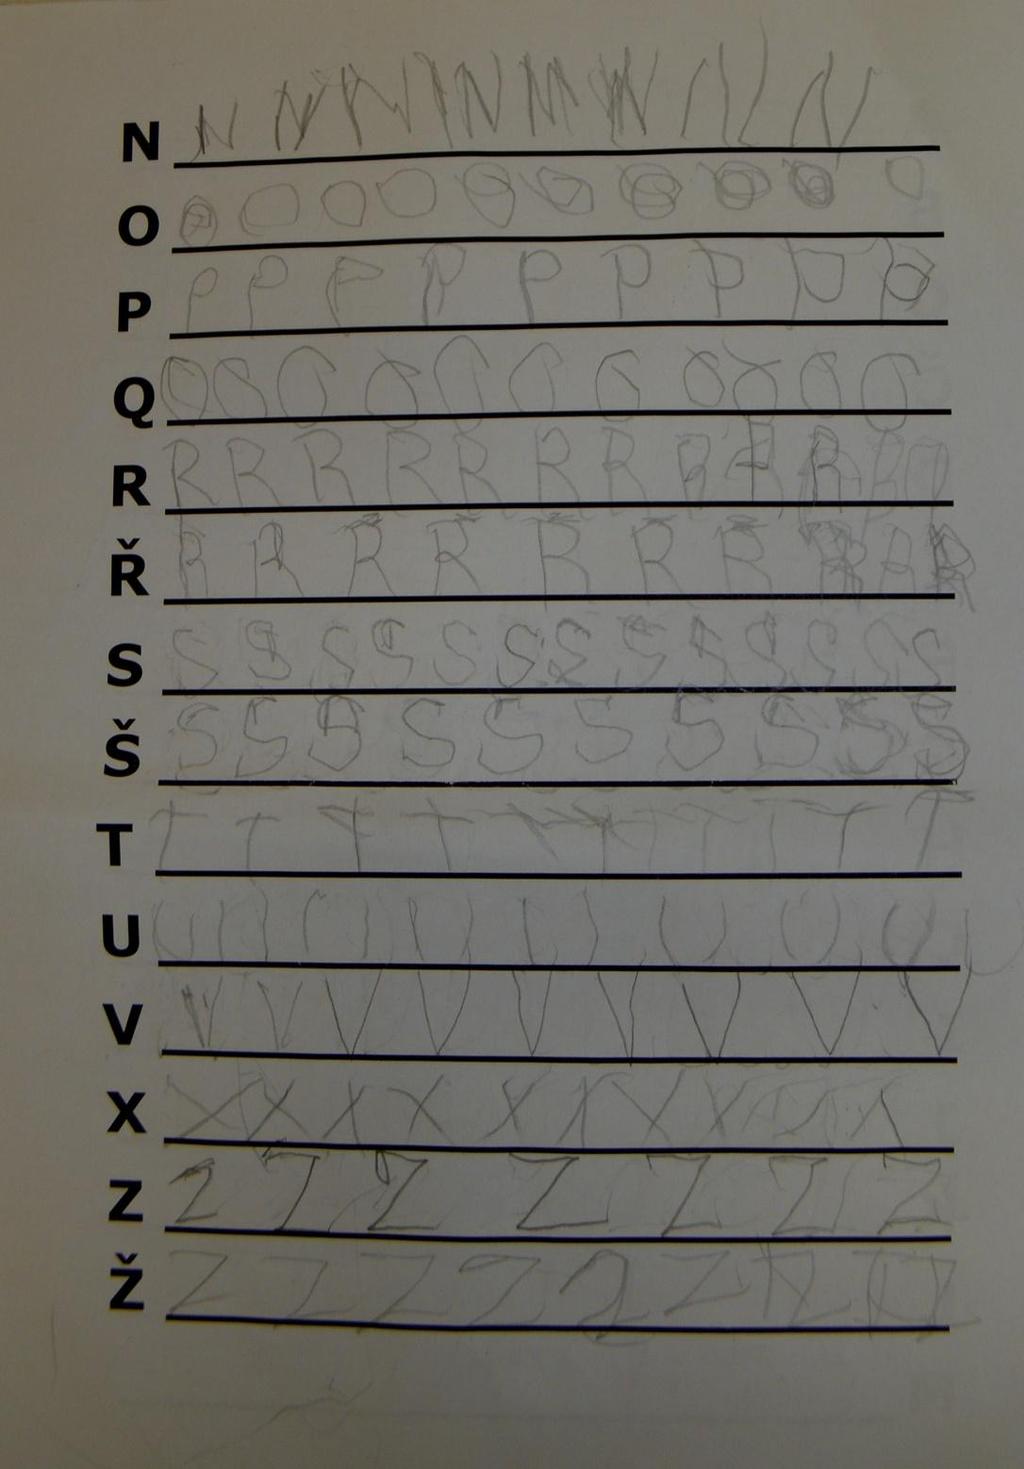 N N N N N N N N N N
O O O O O O O O O O O
P P P P P P P P P P
Q Q Q Q Q Q Q Q Q Q Q Q
R R R R R R R R R R
Ř R R Ř Ř Ř Ř Ř
S S S S S S S S S S S S S S
Š S S S S S S S S S S
T T T T T T T T T T T
U U U U U U U U U
V V V V V V V V V V
X X X X X X X X X
Z Z Z Z Z Z Z Z
Ž Z Z Z Z Z Z Z Z